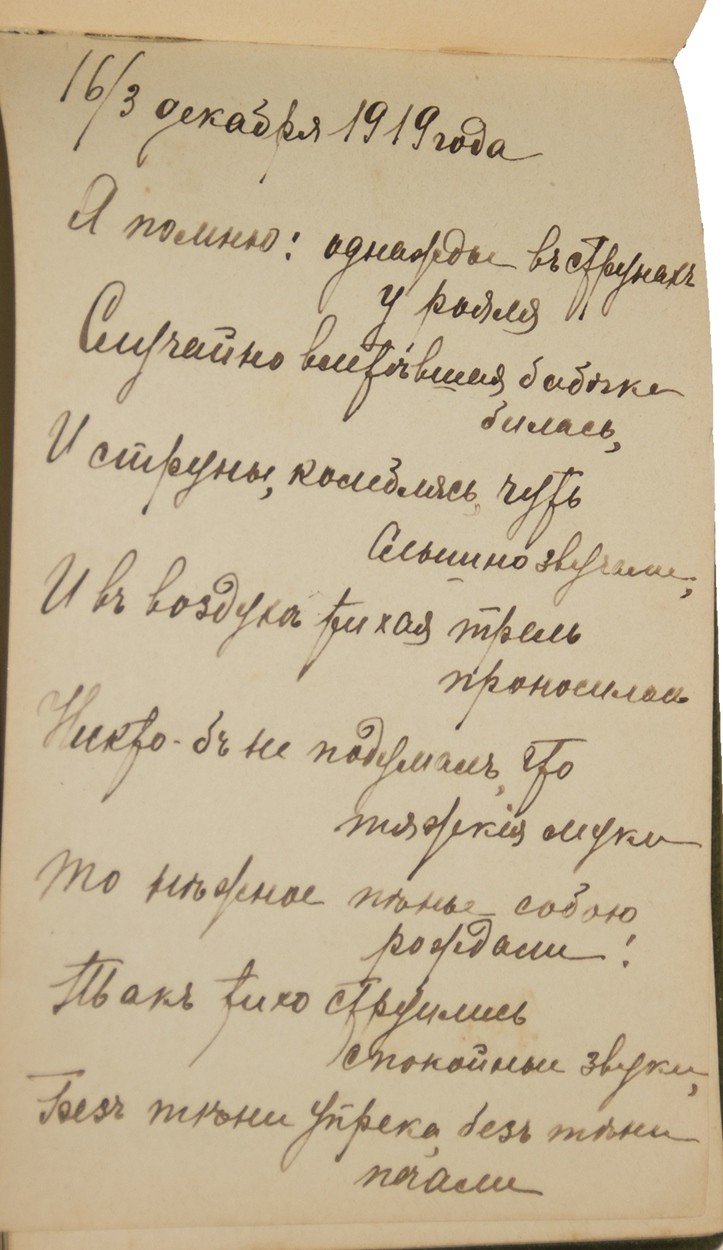 16/3 декабря 1919 года
Я помню: однажды въ струнахъ
у рояля
Случайно влетѣвшая бабочка
билась,
И струны, колеблясь, чуть
слышно звучали,
И въ воздухѣ тихая трель
проносилась
Никто-бъ не подумалъ, что
тяжкія муки
То нѣжное пѣнье собою
рождали!
Такъ тихо струились
спокойные звуки,
Безъ тѣни упрека, безъ тѣни
печали